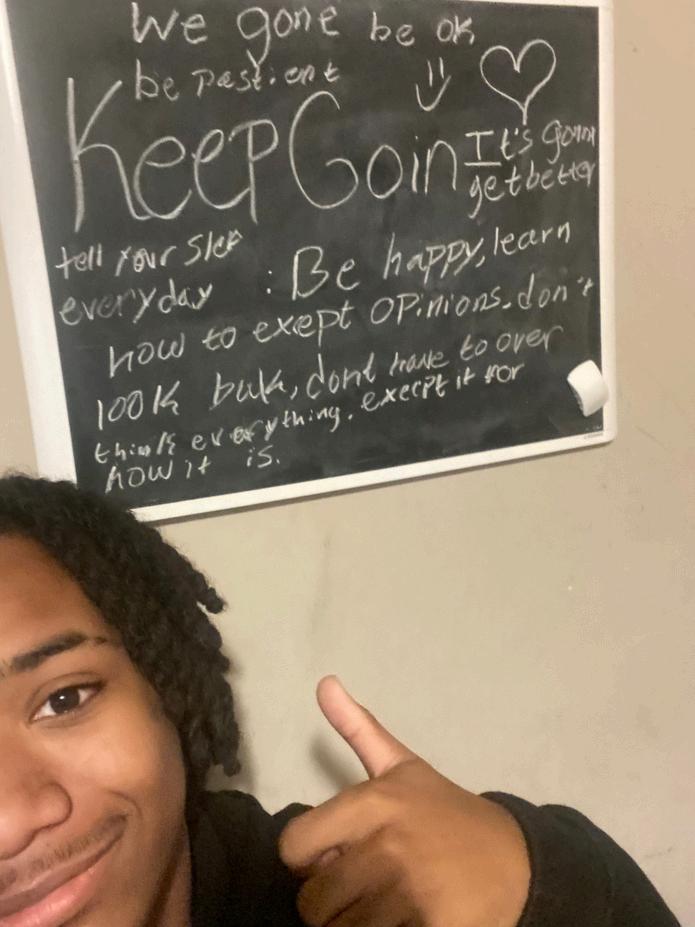 We gone be ok
be pastient
Keep Goin
It's gonn
get better
tell your slef
everyday
: Be happy, learn
how to exept opinions. don't
look bak, dont have to over
think everything. execpt it for
how it is.